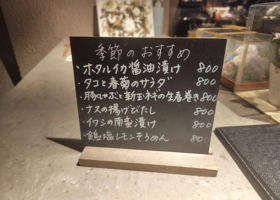 季節のおすすめ
・ホタルイカ醤油漬け 800
・タコと春菊のサラダ 800
・豚しゃぶと新玉ネギの生春巻き 800
・ナスの揚げびたし 800
・イワシの南蛮漬け 800
・鶏塩レモンそうめん 800